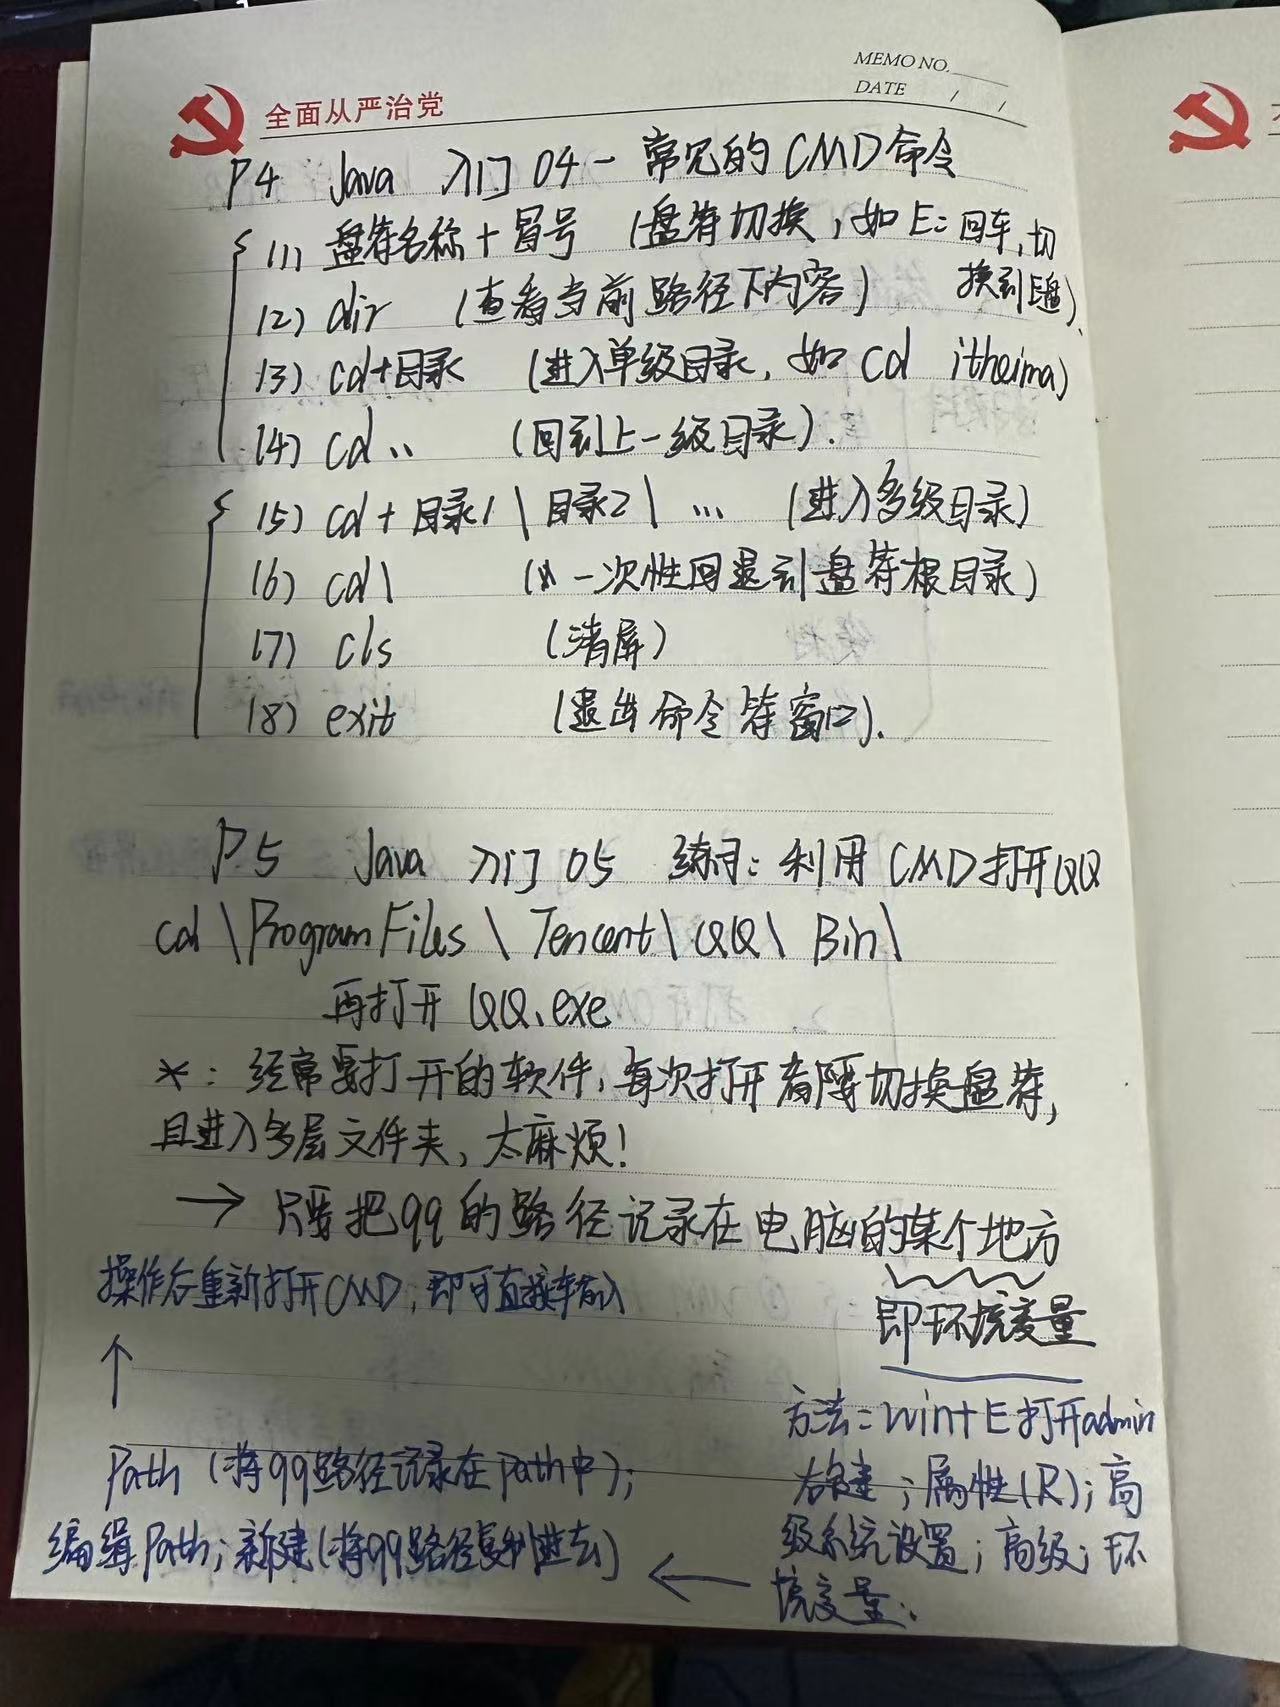 MEMO NO.
DATE / /
全面从严治党
P4 Java 入门04-常见的CMD命令
(1) 盘符名称+冒号 (盘符切换,如E:回车,切
换到E盘)
(2) dir (查看当前路径下内容)
(3) cd+目录 (进入单级目录,如cd itheima)
(4) cd.. (回到上一级目录).
(5) cd+目录1\目录2\... (进入多级目录)
(6) cd\ (一次性回退到盘符根目录)
(7) cls (清屏)
(8) exit (退出命令符窗口).
P5 Java 入门05 练习:利用CMD打开QQ
cd \Program Files \ Tencent\QQ\ Bin\
再打开 QQ.exe
*:经常要打开的软件,每次打开都要切换盘符,
且进入多层文件夹,太麻烦!
→ 只要把qq的路径记录在电脑的某个地方
操作后重新打开CMD,即可直接输入
即环境变量
↑
方法:win+E打开admin
右键;属性(R);高
级系统设置;高级;环
境变量.
←
Path (将qq路径记录在path中);
编辑Path;新建(将qq路径复制进去)